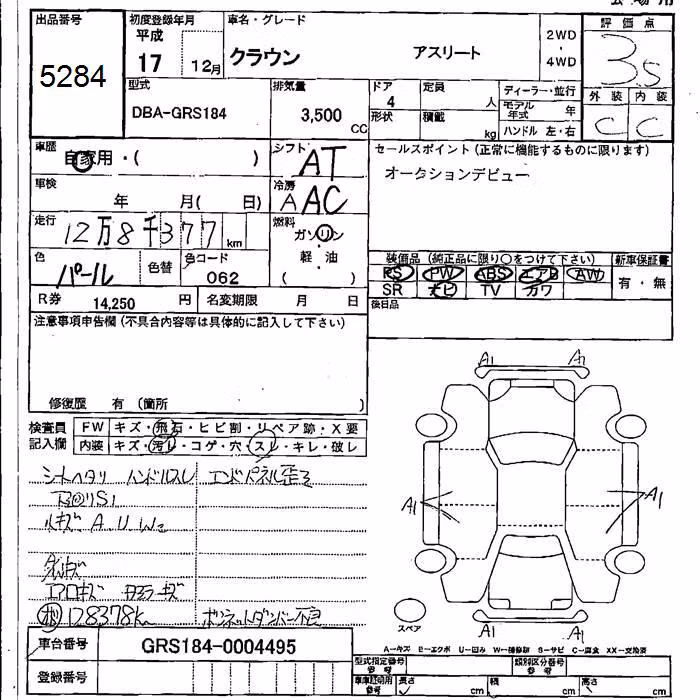 出品番号
5284
初度登録年月
平成
17 12月
車名・グレード
クラウン アスリート
2WD
・
4WD
評価点
3.5
外装 内装
C C
型式
DBA-GRS184
排気量
3,500
CC
ドア
4
形状
定員
人
積載
kg
ディーラー・並行
モデル年式 年
ハンドル 左・右
車歴
自家用・( )
シフト
AT
車検
年 月( 日)
冷房
AAC
走行
12万8千377
km
燃料
ガソリン
軽・油
( )
色
パール
色替
色コード
062
R券 14,250 円
名変期限 月 日
セールスポイント(正常に機能するものに限ります)
オークションデビュー
装備品(純正品に限り○をつけて下さい)
PS PW ABS エアB AW
SR ナビ TV カワ
新車保証書
有・無
後日品
注意事項申告欄(不具合内容等は具体的に記入して下さい)
修復歴 有(箇所 )
検査員
記入欄
FW キズ・飛石・ヒビ割・リペア跡・X要
内装 キズ・汚レ・コゲ・穴・スレ・キレ・破レ
シートヘタリ ハンドルスレ エンドパネル歪ミ
A U W2
128378km ボンネットダンパー不良
車台番号 GRS184-0004495
登録番号
A1 A1
A1 A1
A1 A1
スペア
A—キズ E—エクボ U—凹み W—補修跡 S—サビ C—腐食 XX—交換済
型式指定番号
参考
類別区分番号
参考
車庫証明用
参考
長さ cm 幅 cm 高さ cm